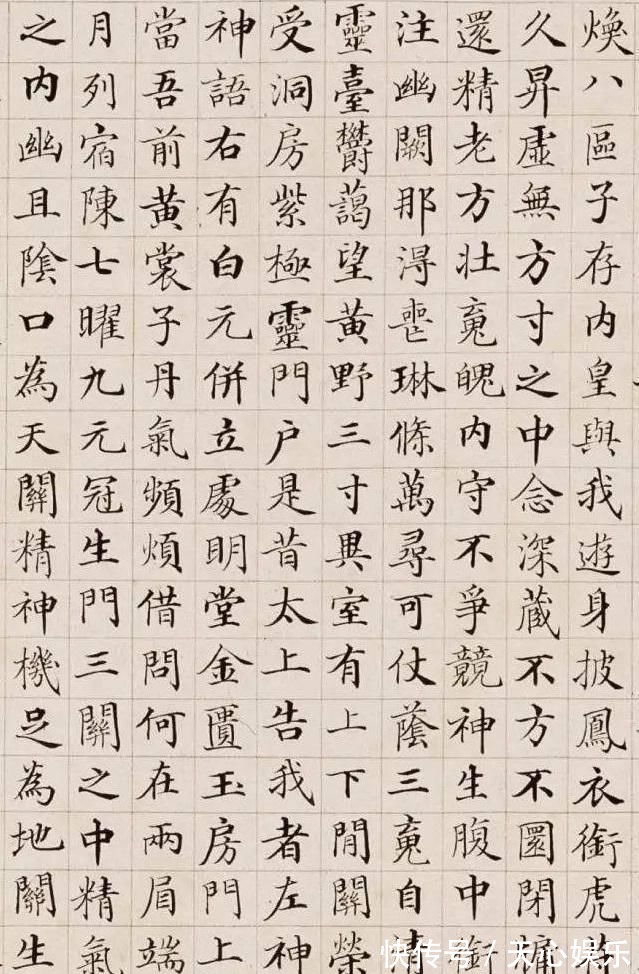 煥八區子存内皇與我遊身披鳳衣銜虎
久昇虛無方寸之中念深藏不方不圓閉牖
還精老方壯䰟魄内守不爭競神生腹中銜
注幽闕那淂喪琳條萬尋可仗蔭三䰟自
靈臺欝藹望黄野三寸異室有上下閒關榮
受洞房紫極靈門户是昔太上告我者左神
神語右有白元併立處明堂金匱玉房門上
當吾前黄裳子丹氣頻煩借問何在兩眉端
月列宿陳七曜九元冠生門三關之中精氣
之内幽且陰口為天關精神機足為地關生
快传号 / 天心娱乐